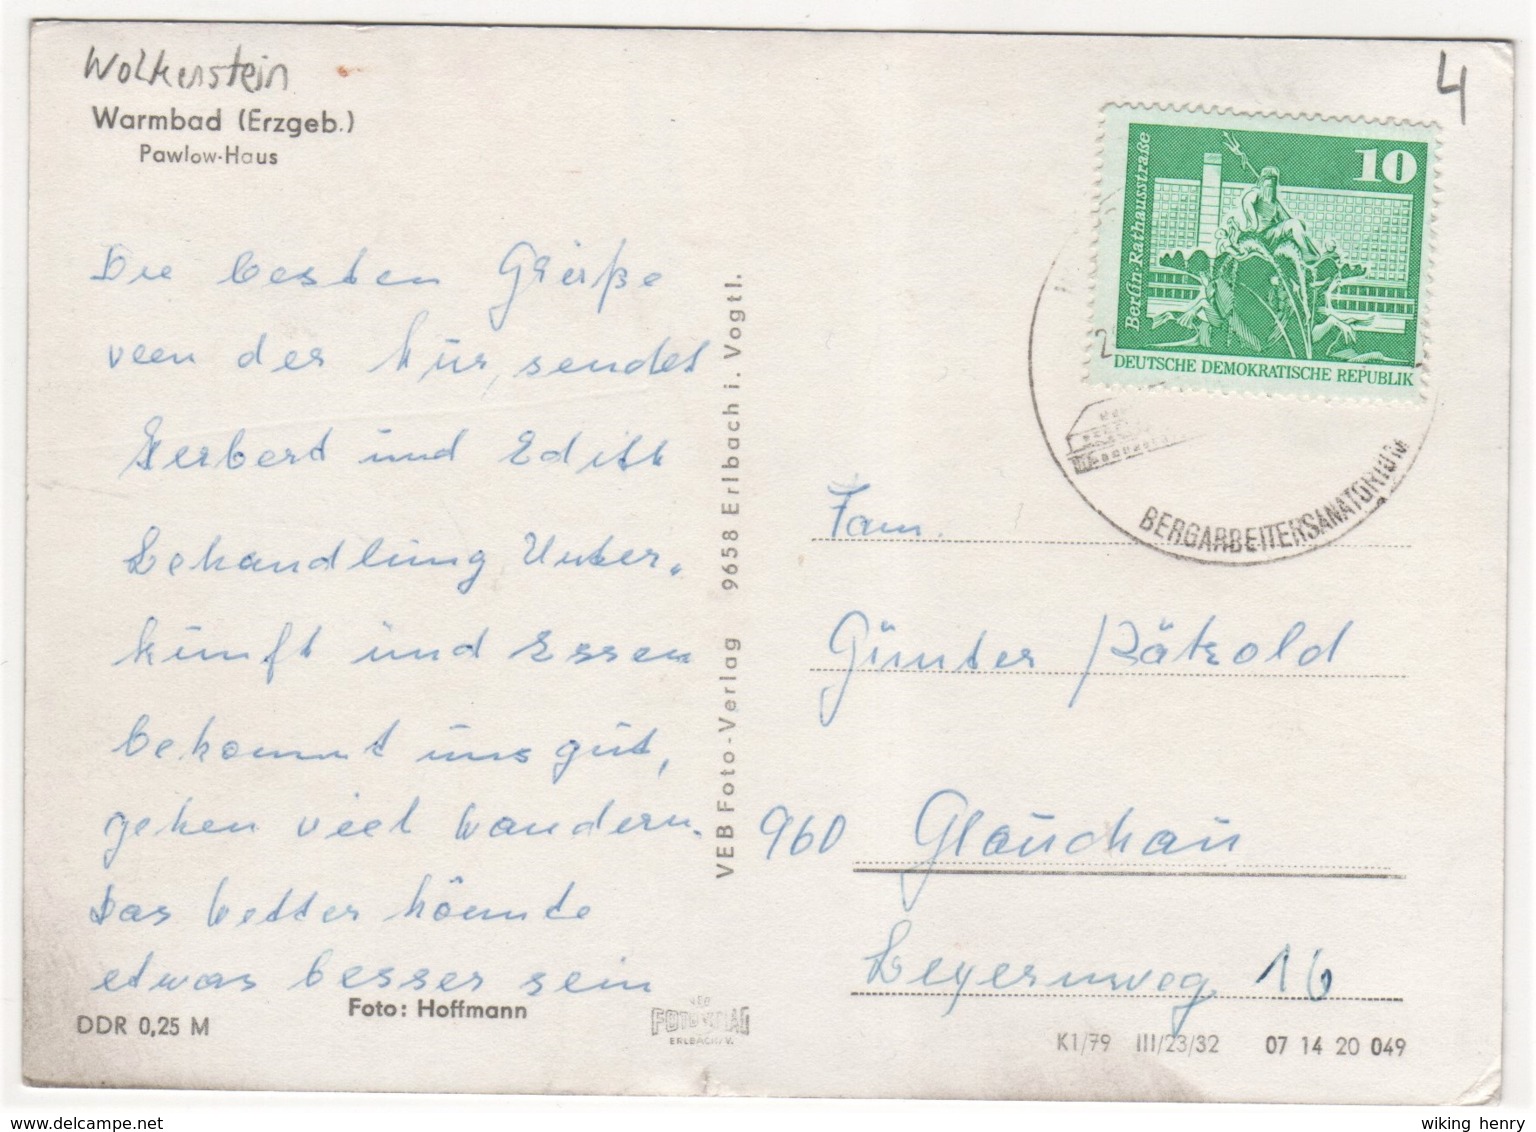 Wolkenstein
Warmbad (Erzgeb.)
Pawlow-Haus
Die besten Grüße
von der Kur, sendet
Herbert und Edith
Behandlung Unter-
kunft und Essen
bekommt uns gut,
gehen viel wandern.
Das Wetter könnte
etwas besser sein
Foto: Hoffmann
DDR 0,25 M
VEB Foto-Verlag 9658 Erlbach i. Vogtl.
VEB
FOTO VERLAG
ERLBACH/V.
4
10
Berlin·Rathausstraße
DEUTSCHE DEMOKRATISCHE REPUBLIK
BERGARBEITERSANATORIUM
Fam.
Günter Pätzold
960 Glauchau
16
K1/79 III/23/32 07 14 20 049
www.delcampe.net
wiking henry